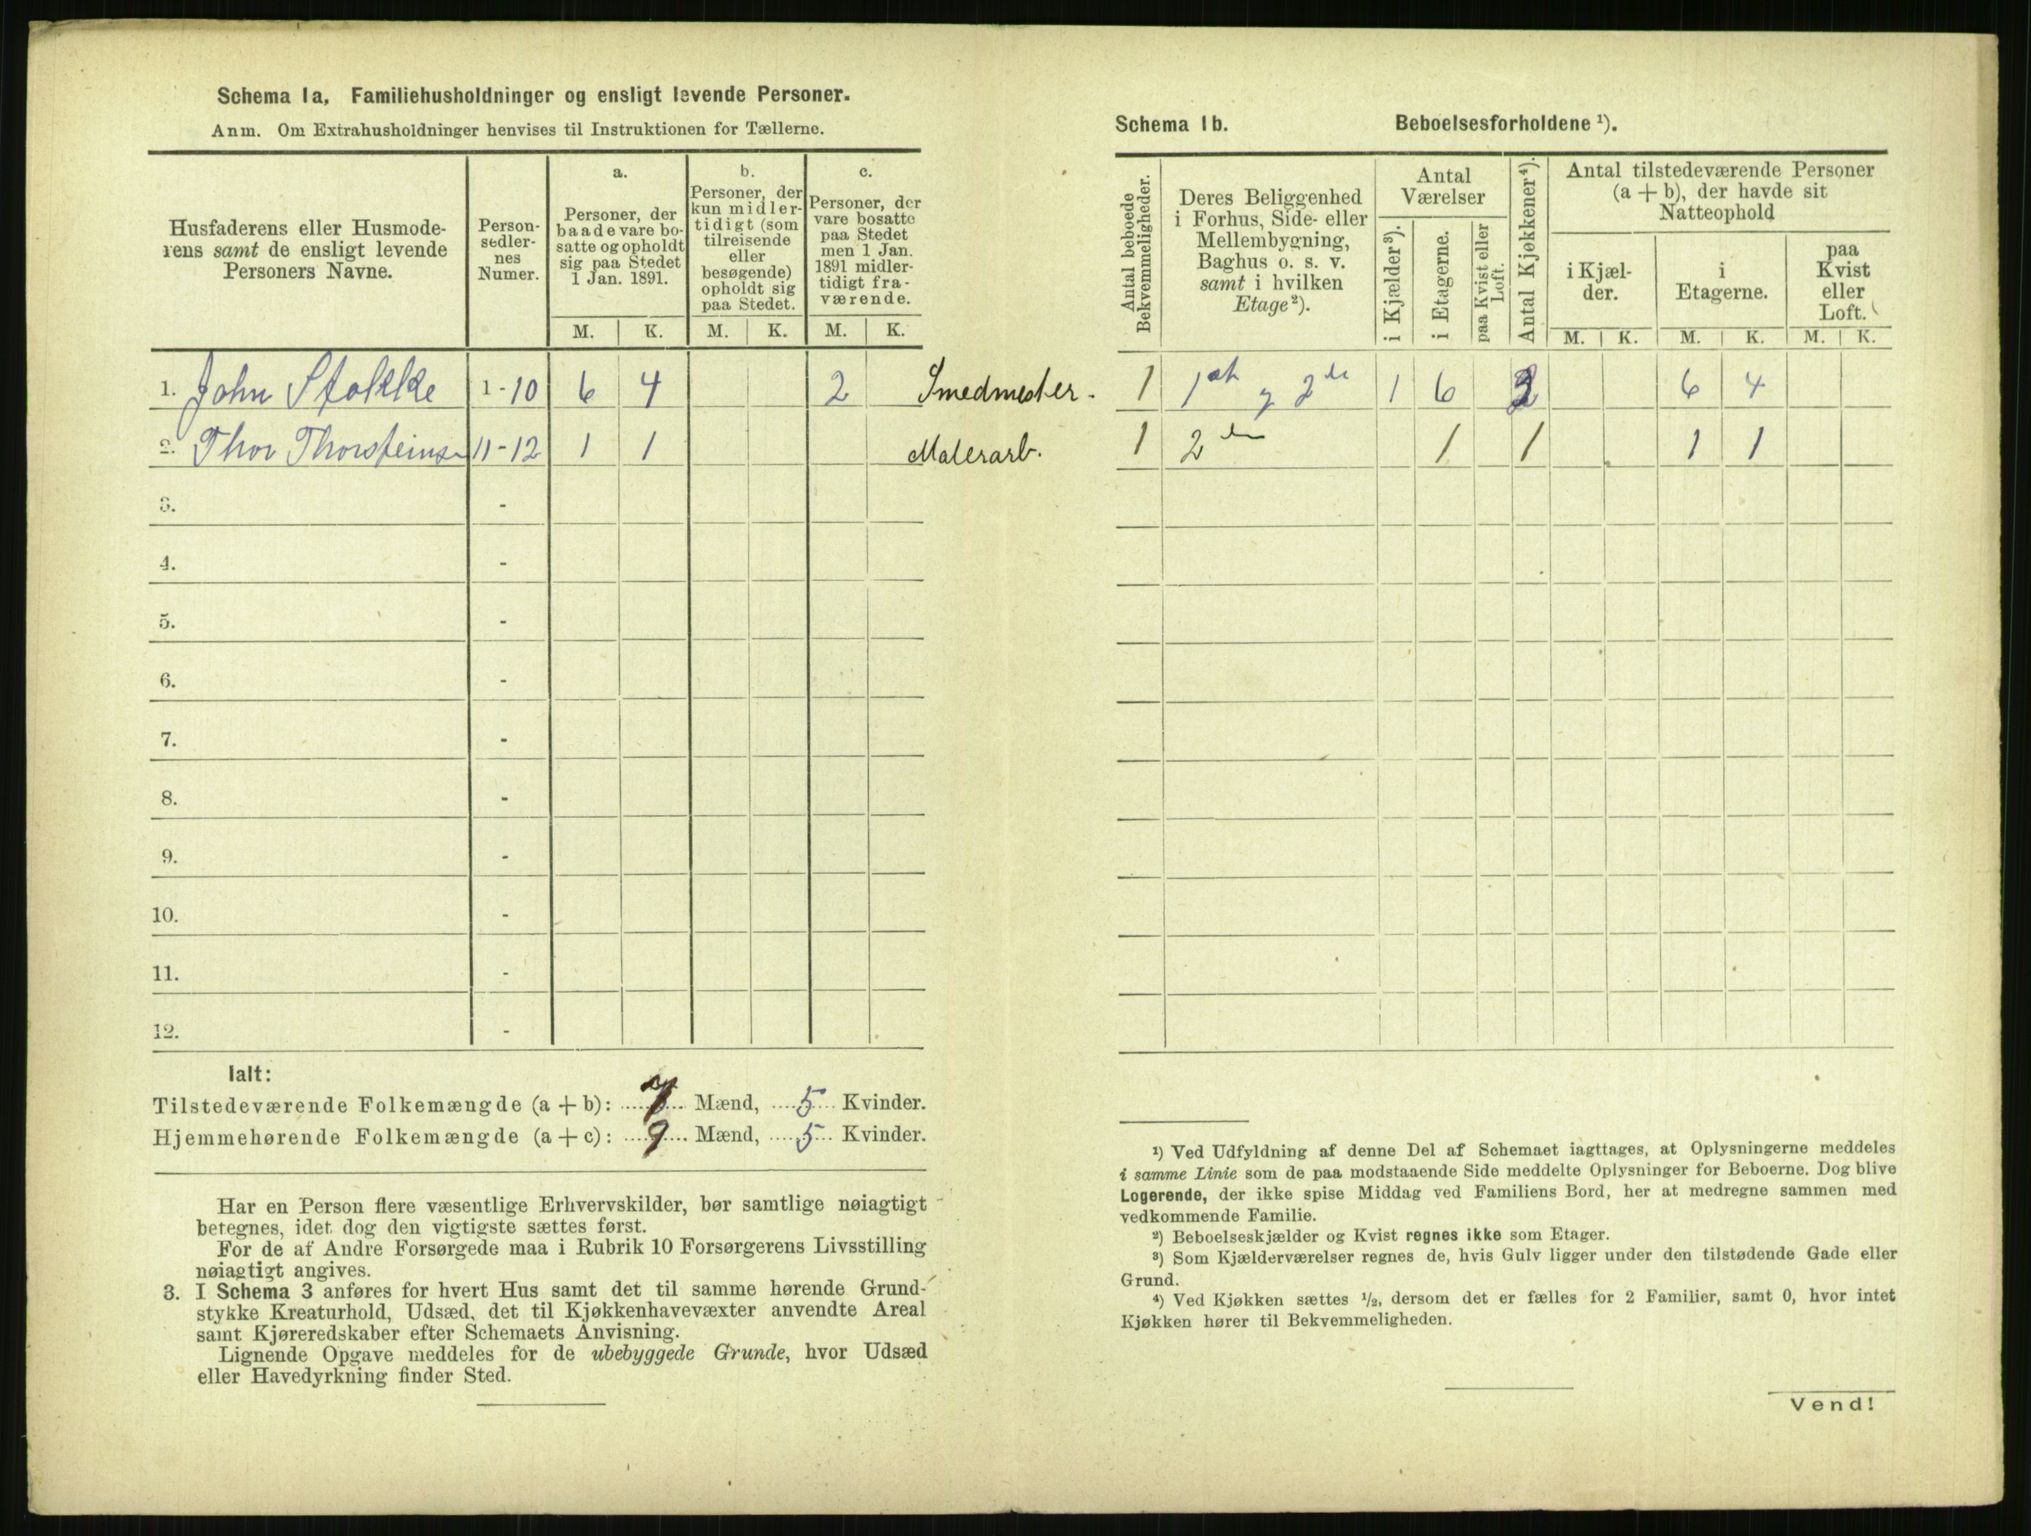 Schema Ia, Familiehusholdninger og ensligt levende Personer.
Anm. Om Extrahusholdninger henvises til Instruktionen for Tællerne.
Husfaderens eller Husmode-
rens samt de ensligt levende
Personers Navne.
Person-
sedler-
nes
Numer.
a.
Personer, der
baade vare bo-
satte og opholdt
sig paa Stedet
1 Jan. 1891.
b.
Personer, der
kun midler-
tidigt (som
tilreisende
eller
besøgende)
opholdt sig
paa Stedet.
c.
Personer, der
vare bosatte
paa Stedet
men 1 Jan.
1891 midler-
tidigt fra-
værende.
M. K. M. K. M. K.
1. John Stokke 1-10 6 4 2 Smedmester.
2. Thor Thorsteins 11-12 1 1 Malerarb.
3. -
4. -
5. -
6. -
7. -
8. -
9. -
10. -
11. -
12. -
Ialt:
Tilstedeværende Folkemængde (a + b): 7 Mænd, 5 Kvinder.
Hjemmehørende Folkemængde (a + c): 9 Mænd, 5 Kvinder.
Har en Person flere væsentlige Erhvervskilder, bør samtlige nøiagtigt
betegnes, idet dog den vigtigste sættes først.
For de af Andre Forsørgede maa i Rubrik 10 Forsørgerens Livsstilling
nøiagtigt angives.
3. I Schema 3 anføres for hvert Hus samt det til samme hørende Grund-
stykke Kreaturhold, Udsæd, det til Kjøkkenhavevæxter anvendte Areal
samt Kjøreredskaber efter Schemaets Anvisning.
Lignende Opgave meddeles for de ubebyggede Grunde, hvor Udsæd
eller Havedyrkning finder Sted.
Schema Ib. Beboelsesforholdene ¹).
Antal beboede
Bekvemmeligheder.
Deres Beliggenhed
i Forhus, Side- eller
Mellembygning,
Baghus o. s. v.
samt i hvilken
Etage ²).
Antal
Værelser
i Kjælder ³).
i Etagerne.
paa Kvist eller
Loft.
Antal Kjøkkener ⁴).
Antal tilstedeværende Personer
(a + b), der havde sit
Natteophold
i Kjæl-
der.
i
Etagerne.
paa
Kvist
eller
Loft.
M. K. M. K. M. K.
1 1st 2de 1 6 6 4
1 2de 1 1 1 1
¹) Ved Udfyldning af denne Del af Schemaet iagttages, at Oplysningerne meddeles
i samme Linie som de paa modstaaende Side meddelte Oplysninger for Beboerne. Dog blive
Logerende, der ikke spise Middag ved Familiens Bord, her at medregne sammen med
vedkommende Familie.
²) Beboelseskjælder og Kvist regnes ikke som Etager.
³) Som Kjælderværelser regnes de, hvis Gulv ligger under den tilstødende Gade eller
Grund.
⁴) Ved Kjøkken sættes ½, dersom det er fælles for 2 Familier, samt 0, hvor intet
Kjøkken hører til Bekvemmeligheden.
Vend!